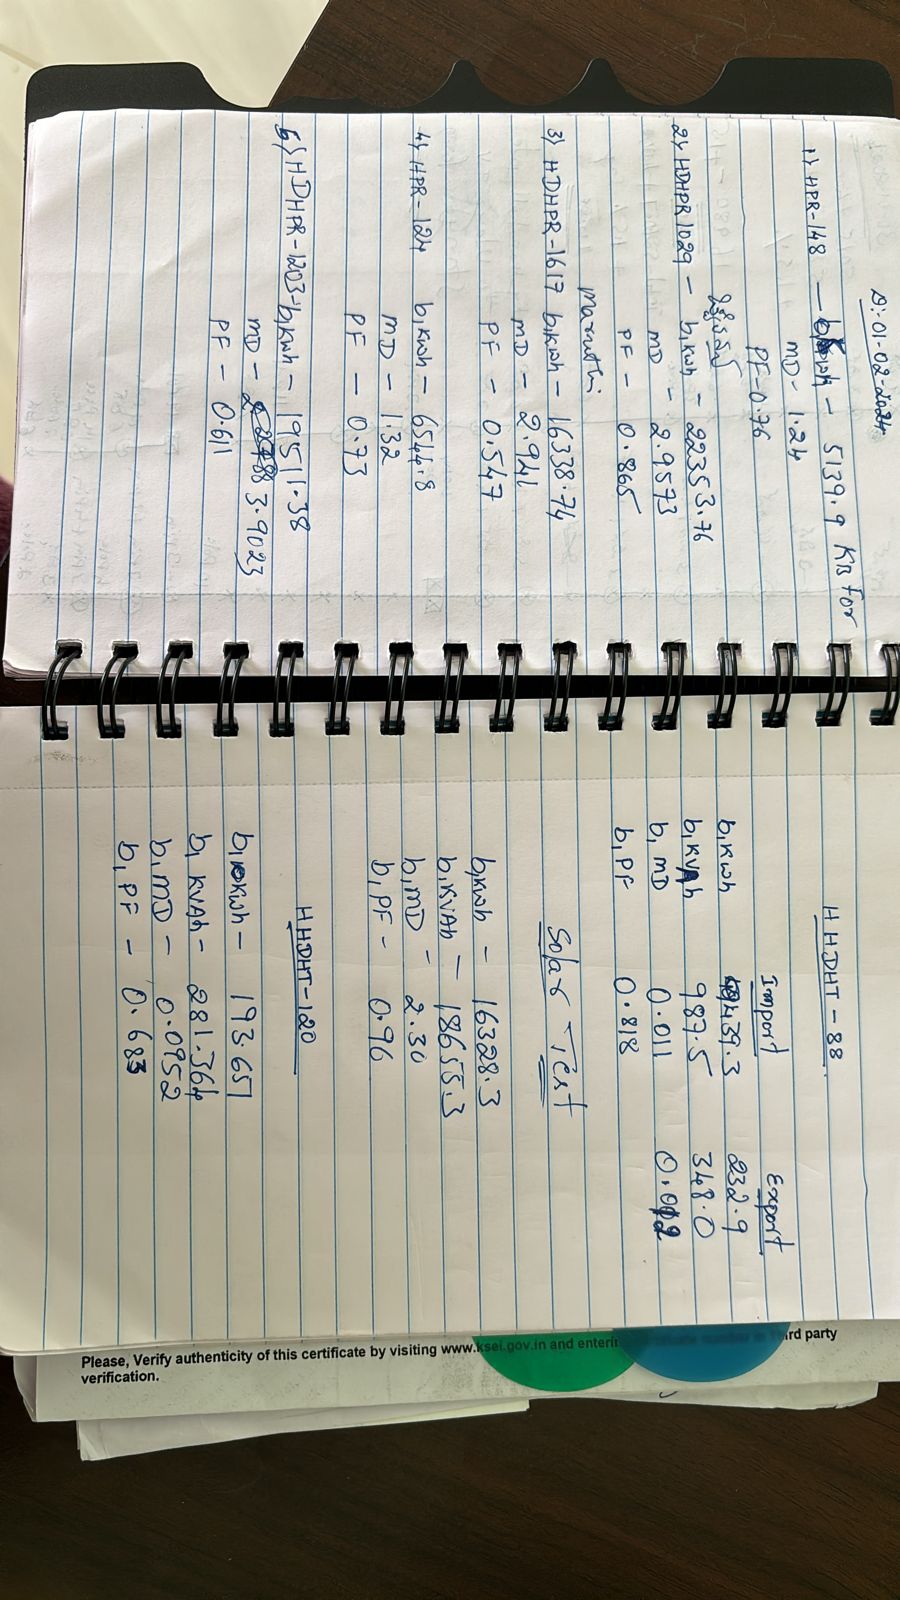 D:01-02-2024
1) HPR-148 – b,kwh – 5139.9 KB for
MD – 1.24
PF – 0.76
2) HDHPR 1029 – b,kwh – 22353.76
MD – 2.9573
PF – 0.865
Maruthi
3) HDHPR-1617 b,kwh – 16338.74
MD – 2.941
PF – 0.547
4) HPR-124 b,kwh – 6544.8
MD – 1.32
PF – 0.73
5) HDHPR-1203-b,kwh – 19511.38
MD – 3.9023
PF – 0.611
HHDHT-88
Import Export
b,kwh 439.3 232.9
b,kVAh 987.5 348.0
b,MD 0.011 0.012
b,PF 0.818
Solar Test
b,kwh – 16328.3
b,kVAh – 18655.3
b,MD – 2.30
b,PF – 0.96
HHDHT-120
b,kwh – 193.651
b,kVAh – 281.364
b,MD – 0.0952
b,PF – 0.683
Please, Verify authenticity of this certificate by visiting www.ksei.gov.in and enterin
rd party
verification.